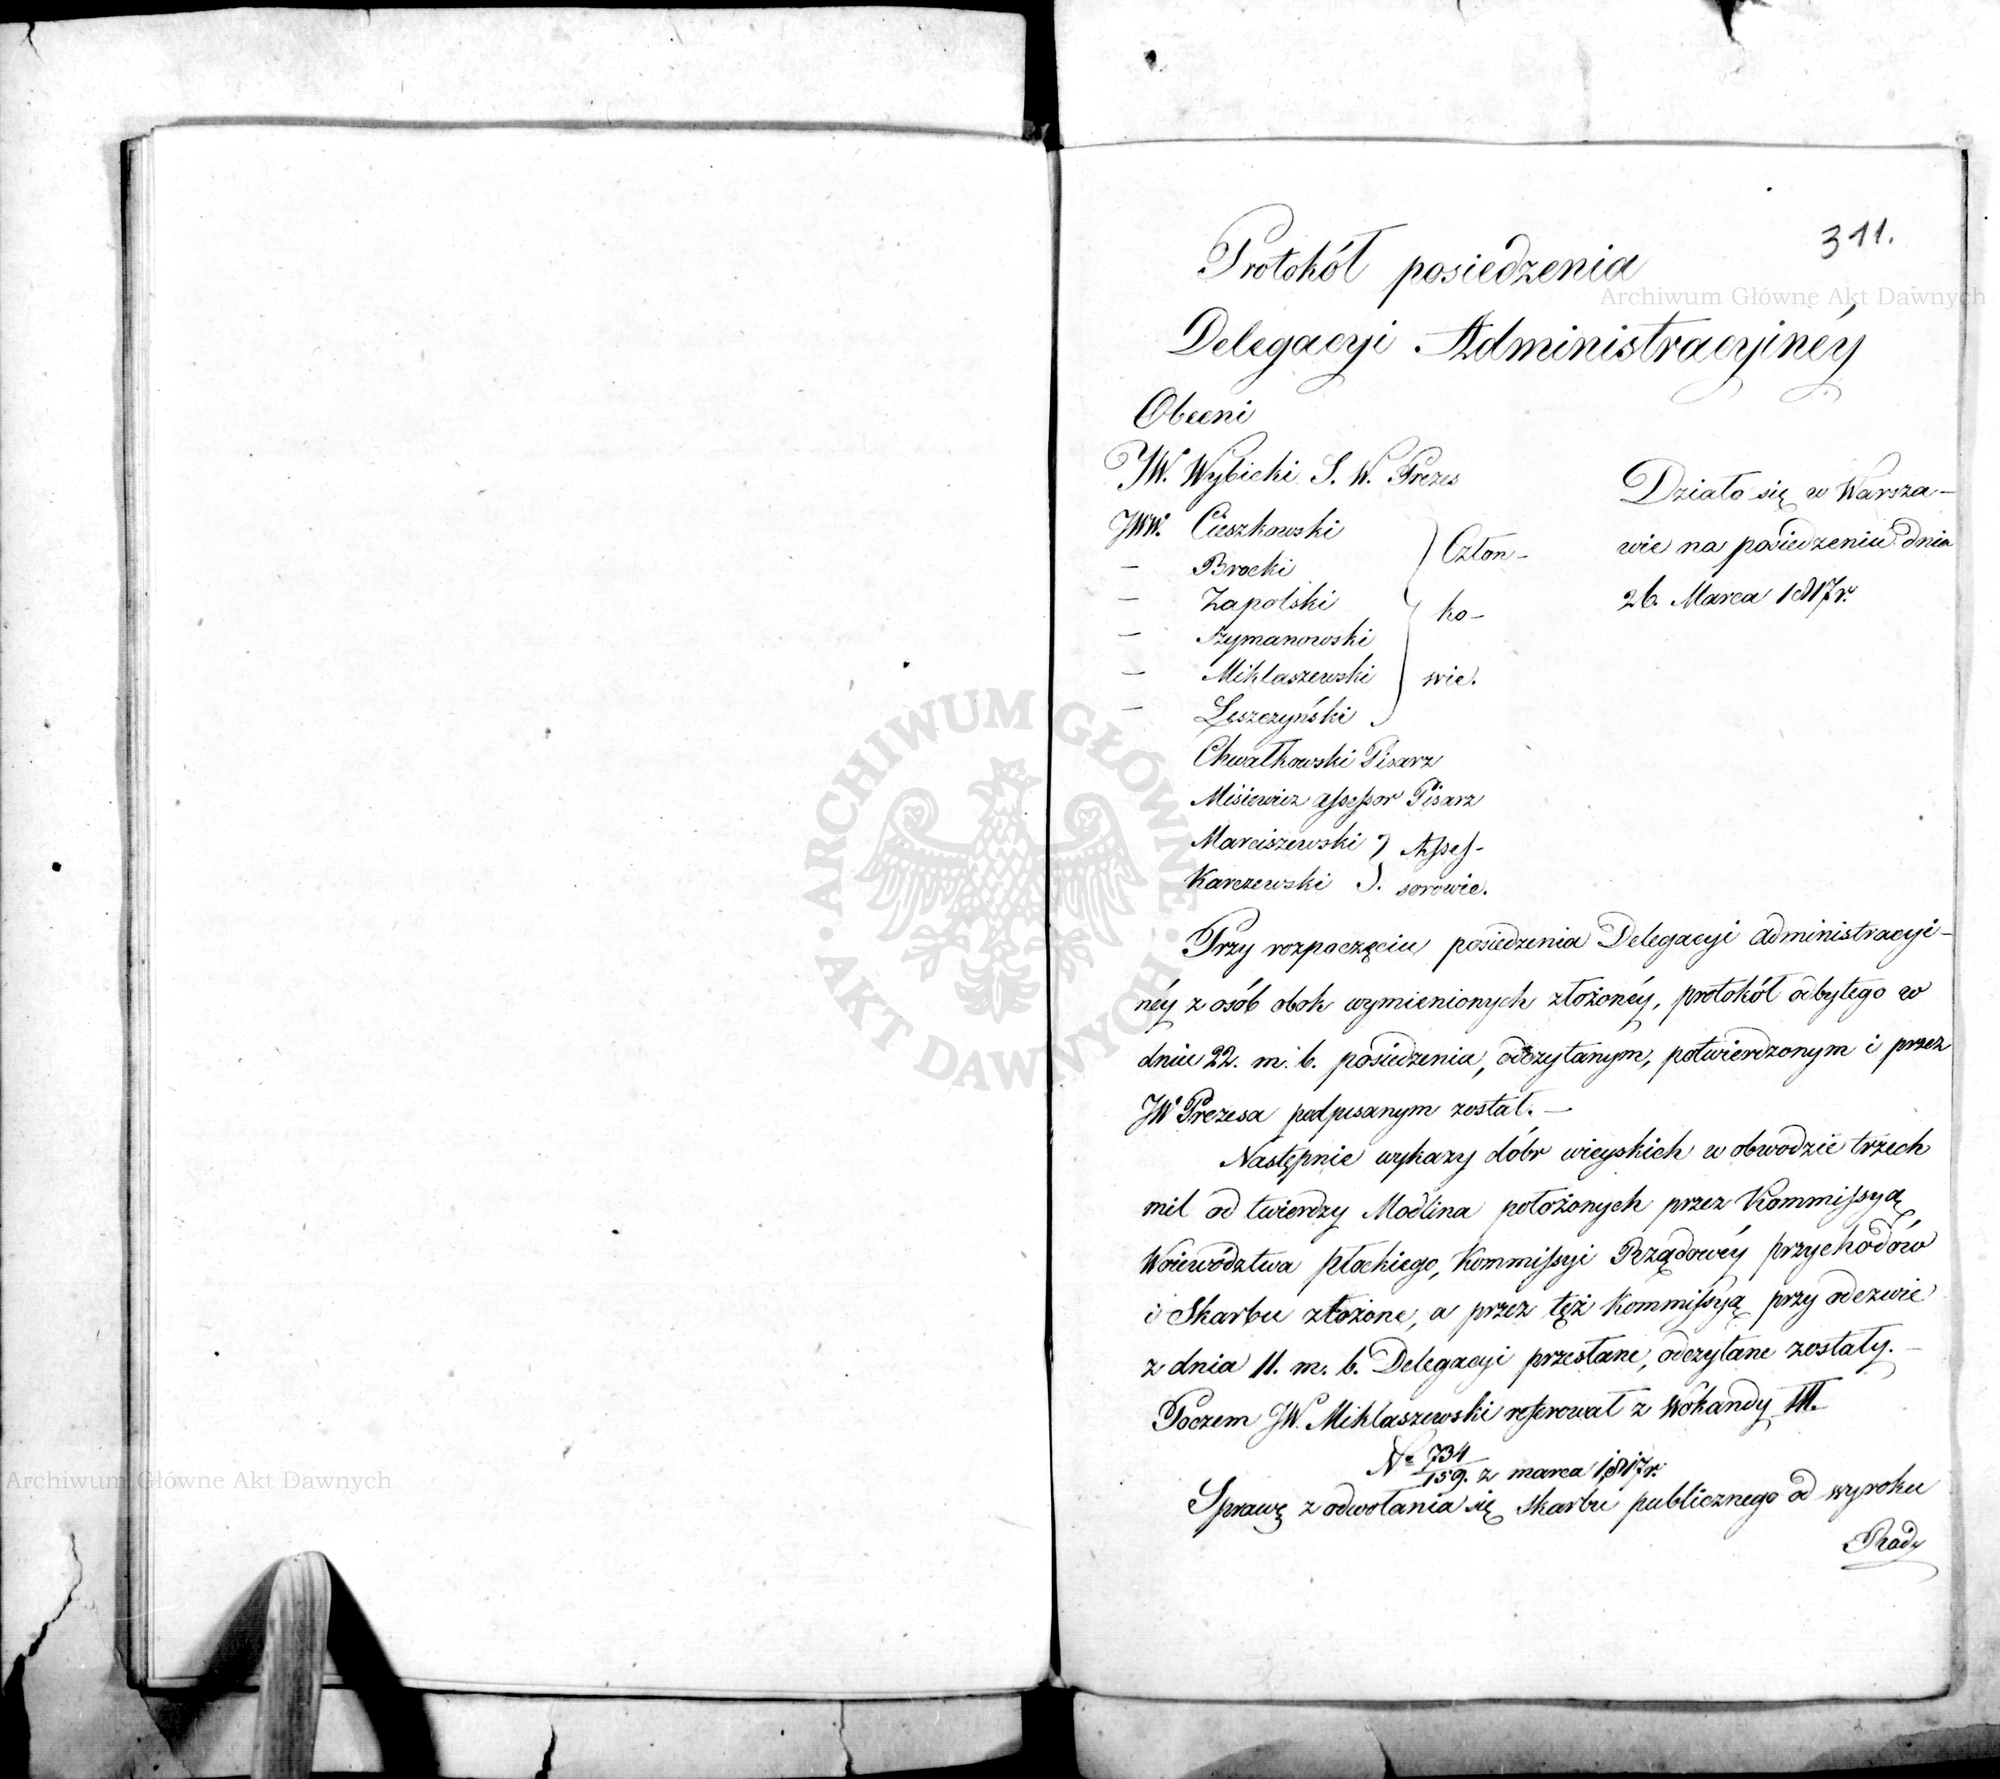 311.
Protokół posiedzenia
Delegacyi Administracyinéy
Obecni
JW. Wybicki S. W. Prezes
JWW. Cieszkowski
— Brocki
— Zapolski
— Szymanowski
— Miklaszewski
— Leszczyński
Człon-
ko-
wie.
Chwałkowski Pisarz
Misiewicz Assessor Pisarz
Marciszewski
Karczewski
Asses-
sorowie.
Działo się w Warsza-
wie na posiedzeniu dnia
26. Marca 1817r.
Przy rozpoczęciu posiedzenia Delegacyi administracyi-
néy z osób obok wymienionych złożonéy, protokół odbytego w
dniu 22. m. b. posiedzenia, odczytanym, potwierdzonym i przez
JW Prezesa podpisanym został. —
Następnie wykazy dóbr wieyskich w obwodzie trzech
mil od twierdzy Modlina położonych przez Kommissyą
Woiewództwa Płockiego, Kommissyi Rządowéy przychodów
i Skarbu złożone, a przez tęż Kommissyą przy odezwie
z dnia 11. m. b. Delegacyi przesłane, odczytane zostały. —
Poczem JW. Miklaszewski referował z Wokandy III.
No 734/159. z marca 1817r.
Sprawę z odwołania się Skarbu publicznego od wyroku
Rady
Archiwum Główne Akt Dawnych
Archiwum Główne Akt Dawnych
ARCHIWUM GŁÓWNE AKT DAWNYCH